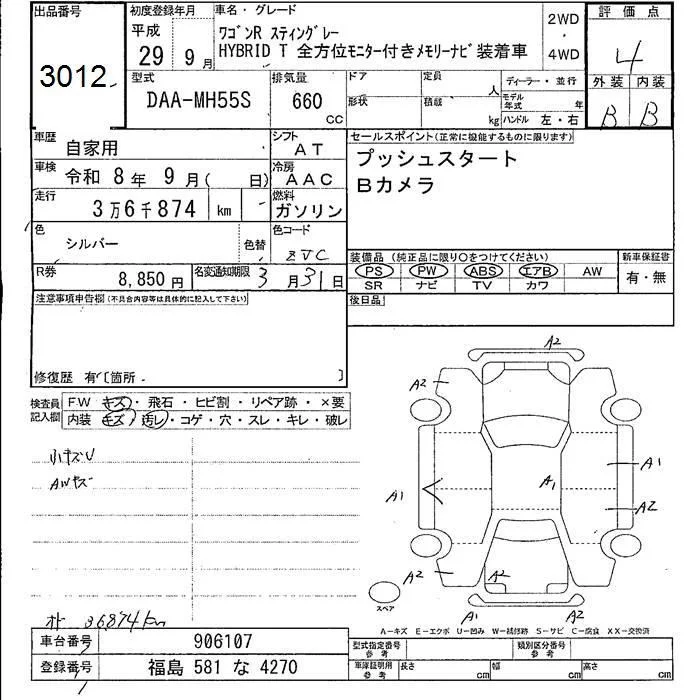 出品番号
3012
初度登録年月
平成
29 9 月
車名・グレード
ワゴンR スティングレー
HYBRID T 全方位モニター付きメモリーナビ装着車
2WD
・
4WD
評価点
4
外装 内装
B B
型式
DAA-MH55S
排気量
660
CC
ドア
形状
定員
人
積載
kg
ディーラー・並行
モデル年式 年
ハンドル 左・右
車歴 自家用
シフト AT
車検 令和 8 年 9 月( 日)
冷房 AAC
走行 3万6千874 km
燃料 ガソリン
色 シルバー
色替
色コード
ZVC
R券 8,850 円
名変通知期限 3 月 31 日
セールスポイント(正常に機能するものに限ります)
プッシュスタート
Bカメラ
装備品 (純正品に限り○をつけてください)
PS PW ABS エアB AW
SR ナビ TV カワ
新車保証書
有・無
後日品
注意事項申告欄(不具合内容等は具体的に記入して下さい)
修復歴 有〔箇所 〕
検査員記入欄
FW キズ・飛石・ヒビ割・リペア跡・×要
内装 キズ・汚レ・コゲ・穴・スレ・キレ・破レ
小キズU
AWキズ
36,874km
A2
A2
A1
A1
A1
A2
A2
A2
A1
A2
スペア
A−キズ E−エクボ U−凹み W−補修跡 S−サビ C−腐食 XX−交換済
車台番号 906107
登録番号 福島 581 な 4270
型式指定番号 参考
類別区分番号 参考
車庫証明用 参考
長さ cm
幅 cm
高さ cm